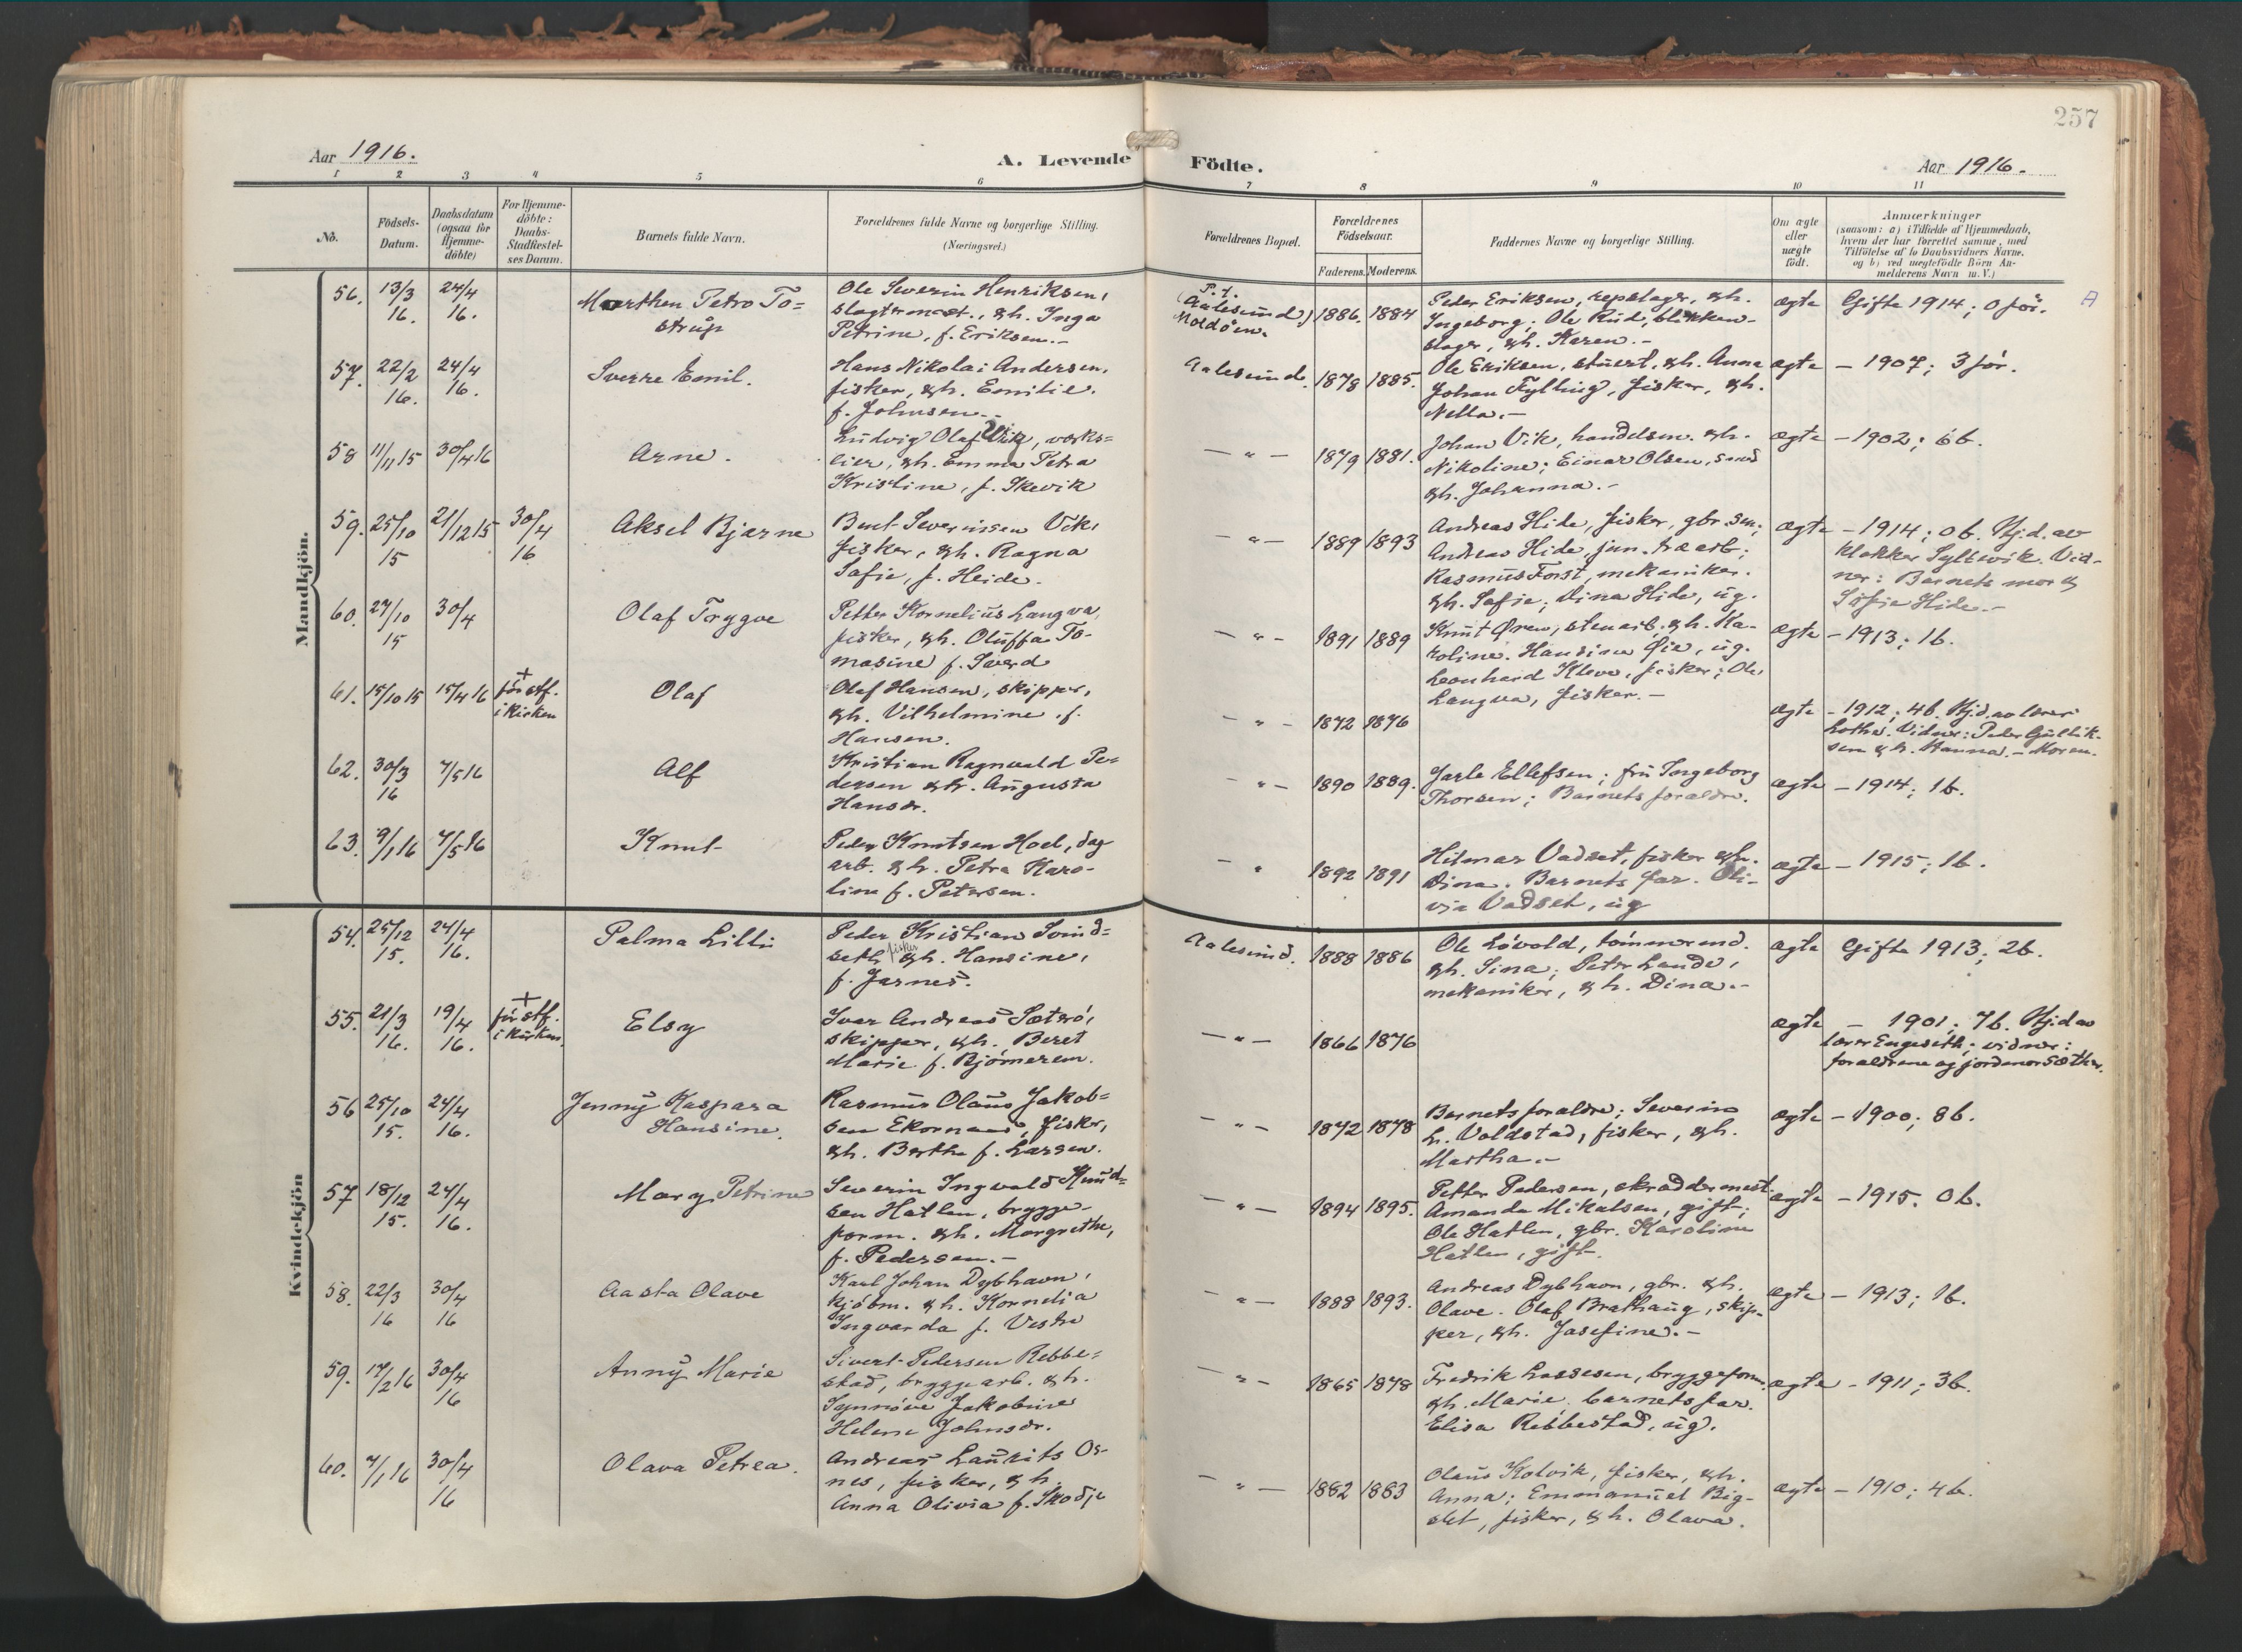 257
Aar 1916.
A. Levende Födte.
Aar 1916.
1 2 3 4 5 6 7 8 9 10 11
No.
Födsels-
Datum.
Daabsdatum
(ogsaa for
Hjemme-
döbte)
For Hjemme-
döbte:
Daabs-
Stadfæstel-
ses Datum.
Barnets fulde Navn.
Forældrenes fulde Navne og borgerlige Stilling.
(Næringsvei.)
Forældrenes Bopæl.
Forældrenes
Födselsaar.
Faderens. Moderens.
Faddernes Navne og borgerlige Stilling.
Om ægte
eller
uægte
födt.
Anmærkninger
(saasom: a) i Tilfælde af Hjemmedaab,
hvem der har forrettet samme, med
Tilföielse af to Daabsvidners Navne.
og b) ved uægtefödte Börn An-
melderens Navn m.V.)
Mandkjön.
56. 13/3 16. 24/4 16.
Marthen Petro To-
strup
Ole Severin Henriksen,
slagtermest., & h. Inga
Petrine, f. Eriksen.-
P.t.
(Aalesund)
Moldöen.
1886. 1884
Peder Eriksen, repslager, & h.
Ingeborg; Ole Rud, blikken-
slager, & h. Karen.-
ægte
Gifte 1914; 0 för. A
57. 22/2 16. 24/4 16.
Sverre Emil.
Hans Nikolai Andersen,
fisker, & h. Emilie.
f. Johnsen.-
Aalesund.
1878 1885.
Ole Eriksen, stuert, & h. Anna
Johan Fylling, fisker, & h.
Nella.-
ægte
- 1907; 3 för.
58 11/11 15 30/4 16
Arne.
Ludvig Olaf Vik, verks-
eier, & h. Emma Petra
Kristine, f. Skevik
- " -
1879 1881.
Johan Vik, handelsm. & h.
Nikoline; Einar Olsen, smed
& h. Johanna.-
ægte
- 1902; 6 b.
59. 25/10 15 21/12 15 30/4 16
Aksel Bjarne
Bent Severinsen Vik,
fisker, & h. Ragna
Sofie, f. Heide.
- " -
1889 1893
Andreas Hide, fisker, gbr. sen;
Andreas Hide, jun.
Rasmus Forst, mekaniker.
& h. Sofie; Dina Hide, ug.
ægte
- 1914; 0 b. Hj.d. av
klokker Syltevik. Vid-
ner: Barnets mor &
Sofie Hide.-
60. 27/10 15 30/4
Olaf Trygve
Petter Kornelius Langva,
fisker, & h. Oluffa To-
masine f. Sverd
- " -
1891 1889
Knut Ørew, stenarb. & h. Ka-
roline. Hansine Øie, ug.
Leonhard Kleve, fisker; Ole
Langva, fisker.-
ægte
- 1913; 1 b.
61. 15/10 15 15/4 16 + för stf.
i kirken
Olaf
Olaf Hansen, skipper,
& h. Vilhelmine. f.
Hansen.
- " -
1872 1876
ægte
- 1912; 4 b. Hj.d. av lærer
Lothe. Vidner: Peder Gullik-
sen & h. Hanna.- Moren.
62. 30/3 16 7/5 16
Alf
Kristian Ragnvald Pe-
dersen & h. Augusta
Hansdr.
- " -
1890 1889.
Jarle Ellefsen; fru Ingeborg
Thorsen; Barnets foraldre.
ægte
- 1914; 1 b.
63. 9/1 16 7/5 16
Knut
Peder Knutsen Hoel, dag
arb. & h. Petra Karo-
line f. Petersen.
- "
1892 1891
Hilmar Vadset, fisker & h.
Dina. Barnets far. Oli-
via Vadset, ug
ægte
- 1915; 1 b.
Kvindekjön
54. 25/12 15. 24/4 16.
Palma Lilli
Peder Kristian Svind-
seth fisker & h. Hansine,
f. Jarnes.
Aalesund.
1888 1886
Ole Lövold, tömmermd.
& h. Sina; Peter Lande,
mekaniker, & h. Dina.-
ægte
Gifte 1913; 2 b.
55. 21/3 16. 19/4 16. + för stf.
i kirken.
Elsy
Ivar Andreas Sætrö,
skipper, & h. Beret
Marie f. Bjömerem.
- " -
1866 1876
ægte
- 1901; 7 b. Hj.d av
lærer Engeseth; vidner:
foraldrene og jordmor Sæther.
56 25/10 15. 24/4 16.
Jenny Kaspara
Hansine.
Rasmus Olaus Jakob-
sen Ekornaas, fisker,
& h. Berthe f. Larsen.
- " -
1872 1878
Barnets foraldre; Severin
L. Voldstad, fisker, & h.
Martha.-
ægte
- 1900; 8 b.
57 18/12 15. 24/4 16.
Mary Petrine
Severin Ingvald Knud-
sen Hatlen, brygge-
form. & h. Margrethe,
f. Pedersen.-
- " -
1894 1895.
Petter Pedersen, skraddermest.
Amanda Mikalsen, gift;
Ole Hatlen, gbr. Karoline
Hatlen, gift.
ægte
- 1915. 0 b.
58. 22/3 16 30/4 16
Aasta Olave
Karl Johan Dybhavn,
kjöbm. & h. Kornelia
Ingvarda f. Vestre
- " -
1888 1893.
Andreas Dybhavn, gbr. & h.
Olave. Olaf Brathaug, skip-
per, & h. Josefine.-
ægte
- 1913; 1 b.
59. 17/2 16 30/4 16
Anny Marie
Sivert Pedersen Rebbe-
stad, bryggearb. & h.
Synnöve Jakobine
Helene Johnsdr.
- " -
1865 1878
Fredrik Lassesen, bryggeform.
& h. Marie. barnets far.
Elisa Rebbestad, ug.
ægte
- 1911; 3 b.
60. 7/1 16 30/4 16
Olava Petrea.
Andreas Laurits Os-
nes, fisker, & h.
Anna Olivia f. Skodje
- " -
1882 1883
Olaus Kolvik, fisker, & h.
Anna; Emmanuel Big-
set, fisker, & h. Olava.
ægte
- 1910; 4 b.